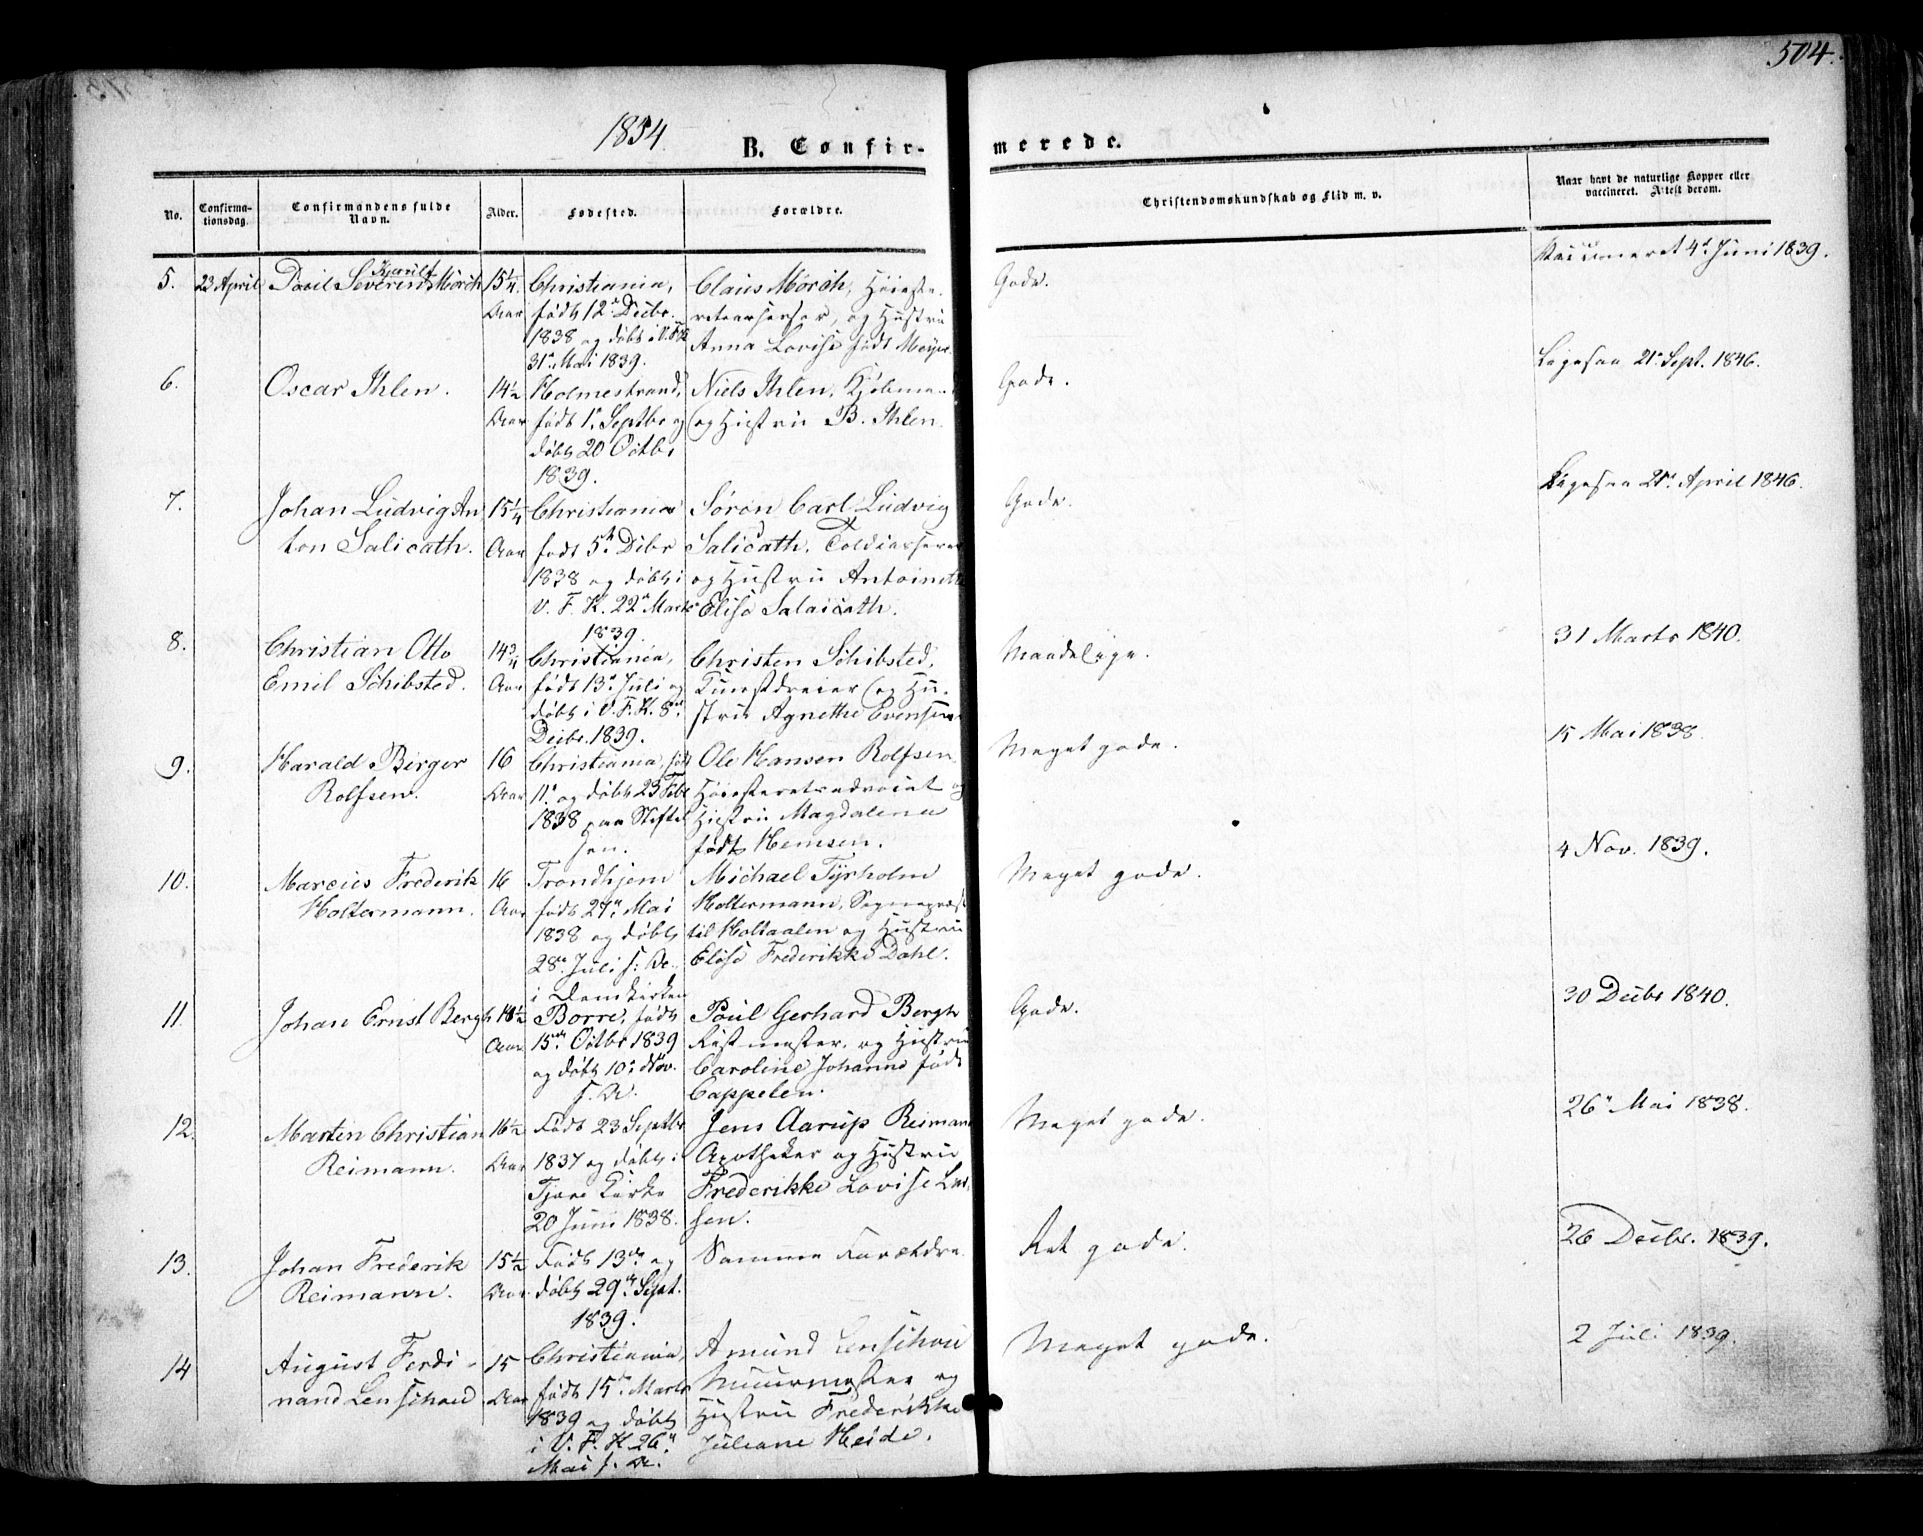 504.
1854.
B. Confir-
merede.
No.
Confirma-
tionsdag.
Confirmandens fulde
Navn.
Alder.
Fødested.
Forældre.
Christendomskundskab og Flid m. v.
Naar havt de naturlige Kopper eller
vaccineret. Attest derom.
5.
23 April
Kjerulf
Povil Severin Mörch
15¼
Aar
Christiania,
født 12te Decbr.
1838 og døbt i V. F. K.
31te Mai 1839.
Claus Mörch, Høieste-
retsassessor, og Hustru
Anna Lovise født Meyer
Gode.
Vaccineret 4de Juni 1839.
6.
Oscar Ihlen.
14½
Aar
Holmestrand,
født 1ste Septbr og
døbt 20 Octbr
1839.
Niels Ihlen, Kjøbma
og Hustru B. Ihlen.
Gode.
Ligesaa 21de Sept. 1846.
7.
Johan Ludvig An
ton Salicath.
15¼
Aar
Christiania
født 5te Decbr
1838 og døbt i
V. F. K. 22de Marts
1839.
Søren Carl Ludvig
Salicath, Toldkasserer
og Hustru Antoinette
Elise Salaicath.
Gode.
Ligesaa 21de April 1846.
8.
Christian Otto
Emil Schibsted.
14¾
Aar
Christiania,
født 13de Juli og
døbt i V. F. K. 8de
Decbr. 1839.
Christen Schibsted,
Kunstdreier og Hu-
stru Agnethe Evensen
Maadelige.
31 Marts 1840.
9.
Harald Birger
Rolfsen.
16
Aar
Christiania, født
11te og døbt 23 Febr
1838 paa Stiftel
sen.
Ole Hansen Rolfsen
Høiesteretsadvocat og
Hustru Magdalena
født Hemsen.
Meget gode.
15 Mai 1838
10.
Marcus Frederik
Holtermann.
16
Aar
Trondhjem
født 27de Mai
1838 og døbt
28de Juli s. A.
i Domkirken
Michael Tyrholm
Holtermann, Sognepræst
til Holtaalen og Hustru
Elise Frederikke Dahl.
Meget gode.
4 Nov. 1839.
11.
Johan Ernst Bergh
14½
Aar
Borre, født
15de Octbr 1839
og døbt 10de Nov.
s. A.
Poul Gerhard Bergh
Ritmester, og Hustru
Caroline Johanne født
Cappelen.
Gode.
30 Decbr 1840.
12.
Marten Christian
Reimann.
16½
Aar
Født 23 Septbr
1837 og døbt i
Kirke
20 Juni 1838.
Jens Aarup Reimann
Apotheker og Hustru
Frederikke Lovise Lar
sen.
Meget gode.
26de Mai 1838.
13.
Johan Frederik
Reimann.
15½
Aar
Født 13de og
døbt 29de Sept.
1839.
Samme Forældre.
Ret gode.
26 Decbr. 1839.
14
August Ferdi-
nand Lenschou
15
Aar
Christiania,
født 15de Marts
1839 og døbt
i V. F. K. 26de
Mai s. A.
Amund Lenschou
Muurmester og
Hustru Frederikke
Juliane Heide.
Meget gode.
2 Juli 1839.